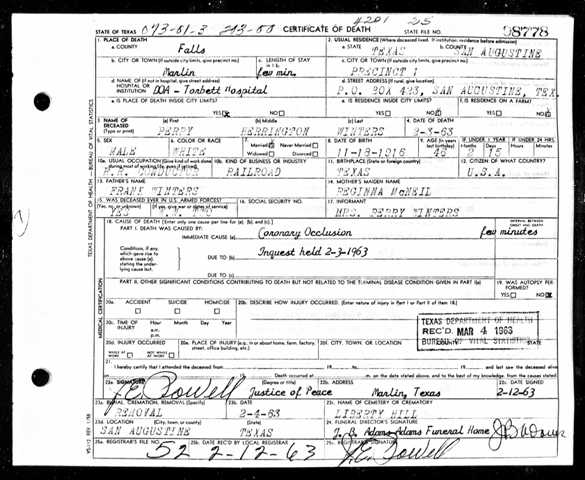 4201 25
STATE OF TEXAS 073-01-3 213-00 CERTIFICATE OF DEATH STATE FILE NO. 08778
1. PLACE OF DEATH 2. USUAL RESIDENCE (Where deceased lived. If institution: residence before admission)
a. COUNTY Falls a. STATE TEXAS b. COUNTY SAN AUGUSTINE
b. CITY OR TOWN (If outside city limits, give precinct no.) c. LENGTH OF STAY c. CITY OR TOWN (If outside city limits, give precinct no.)
Marlin few min. PRECINCT 1
d. NAME OF (If not in hospital, give street address) d. STREET ADDRESS (If rural, give location)
HOSPITAL OR INSTITUTION DOA - Torbett Hospital P.O. BOX 423, SAN AUGUSTINE, TEX.
e. IS PLACE OF DEATH INSIDE CITY LIMITS? e. IS RESIDENCE INSIDE CITY LIMITS? f. IS RESIDENCE ON A FARM?
YES NO YES NO YES NO
3. NAME OF DECEASED (Type or print) (a) First (b) Middle (c) Last 4. DATE OF DEATH
PERRY HERRINGTON WINTERS 2-3-63
5. SEX 6. COLOR OR RACE 7. Married Never Married 8. DATE OF BIRTH 9. AGE (In years last birthday) IF UNDER 1 YEAR IF UNDER 24 HRS.
MALE WHITE Widowed Divorced 11-18-1916 46 2 15
10a. USUAL OCCUPATION (Give kind of work done during most of working life, even if retired) 10b. KIND OF BUSINESS OR INDUSTRY 11. BIRTHPLACE (State or foreign country) 12. CITIZEN OF WHAT COUNTRY?
R.R. CONDUCTOR RAILROAD TEXAS U.S.A.
13. FATHER'S NAME 14. MOTHER'S MAIDEN NAME
FRANK WINTERS REGINNA McNEIL
15. WAS DECEASED EVER IN U.S. ARMED FORCES? 16. SOCIAL SECURITY NO. 17. INFORMANT
(Yes, no, or unknown) (If yes, give war or dates of service)
YES W.W. TWO MRS. PERRY WINTERS
18. CAUSE OF DEATH [Enter only one cause per line for (a), (b), and (c).] INTERVAL BETWEEN ONSET AND DEATH
PART I. DEATH WAS CAUSED BY:
IMMEDIATE CAUSE (a) Coronary Occlusion few minutes
Conditions, if any, which gave rise to above cause (a), stating the underlying cause last.
DUE TO (b) Inquest held 2-3-1963
DUE TO (c)
PART II. OTHER SIGNIFICANT CONDITIONS CONTRIBUTING TO DEATH BUT NOT RELATED TO THE TERMINAL DISEASE CONDITION GIVEN IN PART I(a) 19. WAS AUTOPSY PERFORMED?
YES NO
20a. ACCIDENT SUICIDE HOMICIDE 20b. DESCRIBE HOW INJURY OCCURRED. (Enter nature of injury in Part I or Part II of item 18.)
20c. TIME OF INJURY Hour Month Day Year
a.m.
p.m.
TEXAS DEPARTMENT OF HEALTH
REC'D MAR 4 1963
BUREAU OF VITAL STATISTICS
20d. INJURY OCCURRED 20e. PLACE OF INJURY (e.g., in or about home, farm, factory, street, office building, etc.) 20f. CITY, TOWN, OR LOCATION COUNTY STATE
WHILE AT WORK NOT WHILE AT WORK
21. I hereby certify that I attended the deceased from 19 to 19 and last saw the deceased alive
on 19 Death occurred at m. on the date stated above; and to the best of my knowledge, from the causes stated
22a. SIGNATURE (Degree or title) 22b. ADDRESS 22c. DATE SIGNED
J.E. Powell Justice of Peace Marlin, Texas 2-12-63
23a. BURIAL, CREMATION, REMOVAL (Specify) 23b. DATE 23c. NAME OF CEMETERY OR CREMATORY
REMOVAL 2-4-63 LIBERTY HILL
23d. LOCATION (City, town, or county) (State) 24. FUNERAL DIRECTOR'S SIGNATURE
SAN AUGUSTINE TEXAS J. B. Adams-Adams Funeral Home J B Adams
25a. REGISTRAR'S FILE NO. 25b. DATE REC'D BY LOCAL REGISTRAR 25c. REGISTRAR'S SIGNATURE
52 2-12-63 J.E. Powell
TEXAS DEPARTMENT OF HEALTH — BUREAU OF VITAL STATISTICS
MEDICAL CERTIFICATION